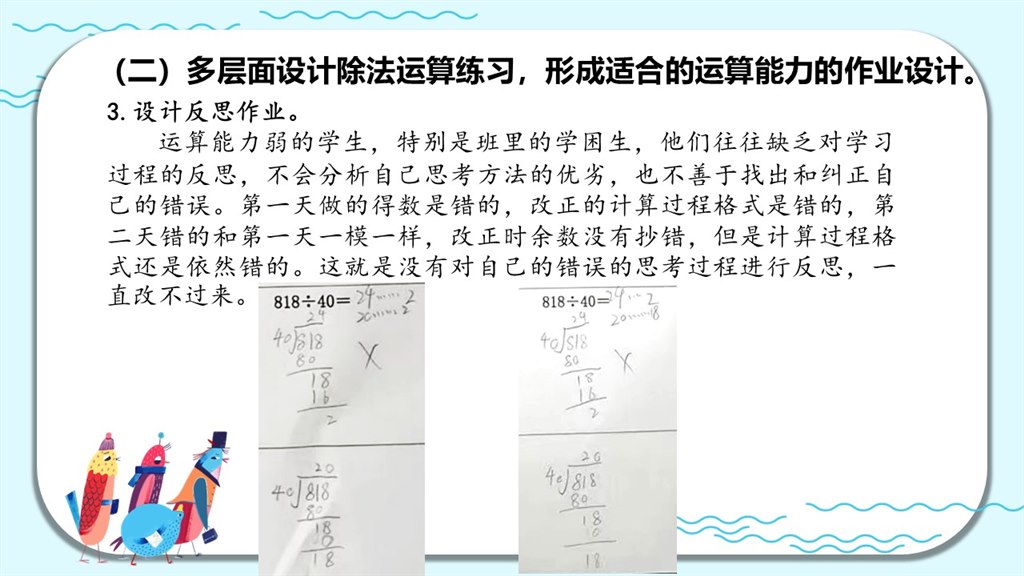 （二）多层面设计除法运算练习，形成适合的运算能力的作业设计。
3.设计反思作业。
运算能力弱的学生，特别是班里的学困生，他们往往缺乏对学习
过程的反思，不会分析自己思考方法的优劣，也不善于找出和纠正自
己的错误。第一天做的得数是错的，改正的计算过程格式是错的，第
二天错的和第一天一模一样，改正时余数没有抄错，但是计算过程格
式还是依然错的。这就是没有对自己的错误的思考过程进行反思，一
直改不过来。
818÷40=24……2
20……2
24
40 818
80
18
16
2
X
20
40 818
80
18
10
18
818÷40=24…2
20……18
24
40 818
80
18
16
2
X
20
40 818
80
18
10
18